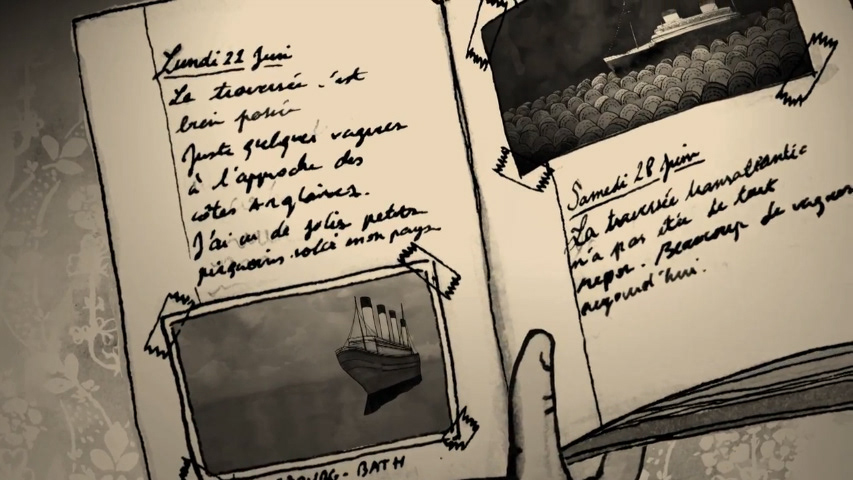 Lundi 22 Juin
La traversée s'est
bien passée
Juste quelques vagues
à l'approche des
côtes Anglaises.
J'ai vu de jolis petits
pingouins
BOURG - BATH
Samedi 28 Juin
La traversée transatlantic
n'a pas étée de tout
repos. Beaucoup de vagues
aujourd'hui.